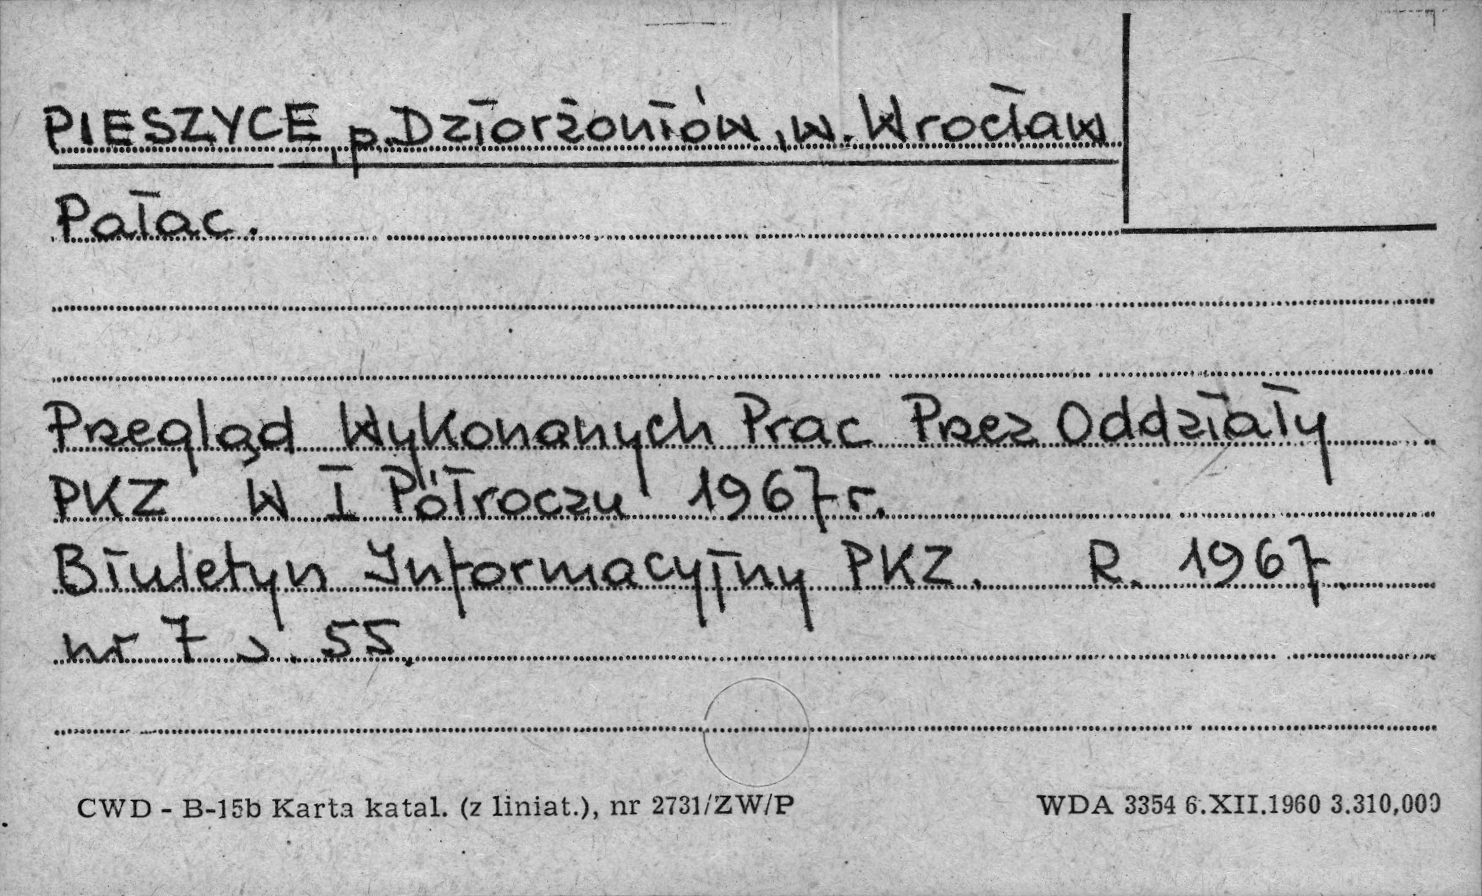 PIESZYCE, p. Dziorżoniów, w. Wrocław
Pałac.
Przegląd Wykonanych Prac Przez Oddziały
PKZ W I Półroczu 1967 r.
Biuletyn Informacyjny PKZ. R. 1967.
nr 7 s. 55.
CWD - B-15b Karta katal. (z liniat.), nr 2731/ZW/P
WDA 3354 6.XII.1960 3.310,000